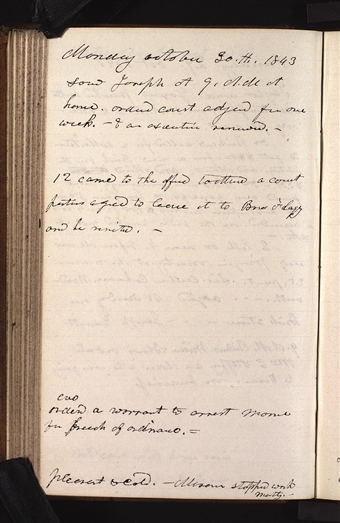 Monday october 30.th. 1843
saw Joseph at 9. A.M at
home. ordered court adj'd for one
week. - & an execution renewed. -
12 came to the office to attend a court
parties agreed to leave it to Bro
and he
eve
orderd a warrant to arrest
for breach of ordnance. =
pleasant & cold. - Masons stopped work
mostly. -